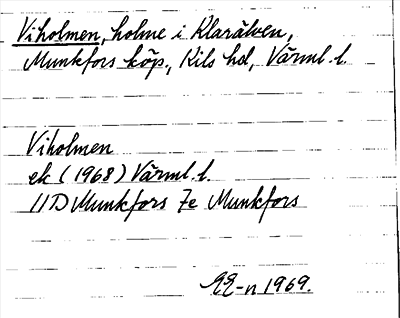 Viholmen, holme i Klarälven,
Munkfors köp., Kils hd, Värml. l.
Viholmen
ek (1968) Värml. l.
11D Munkfors 7e Munkfors
1969.